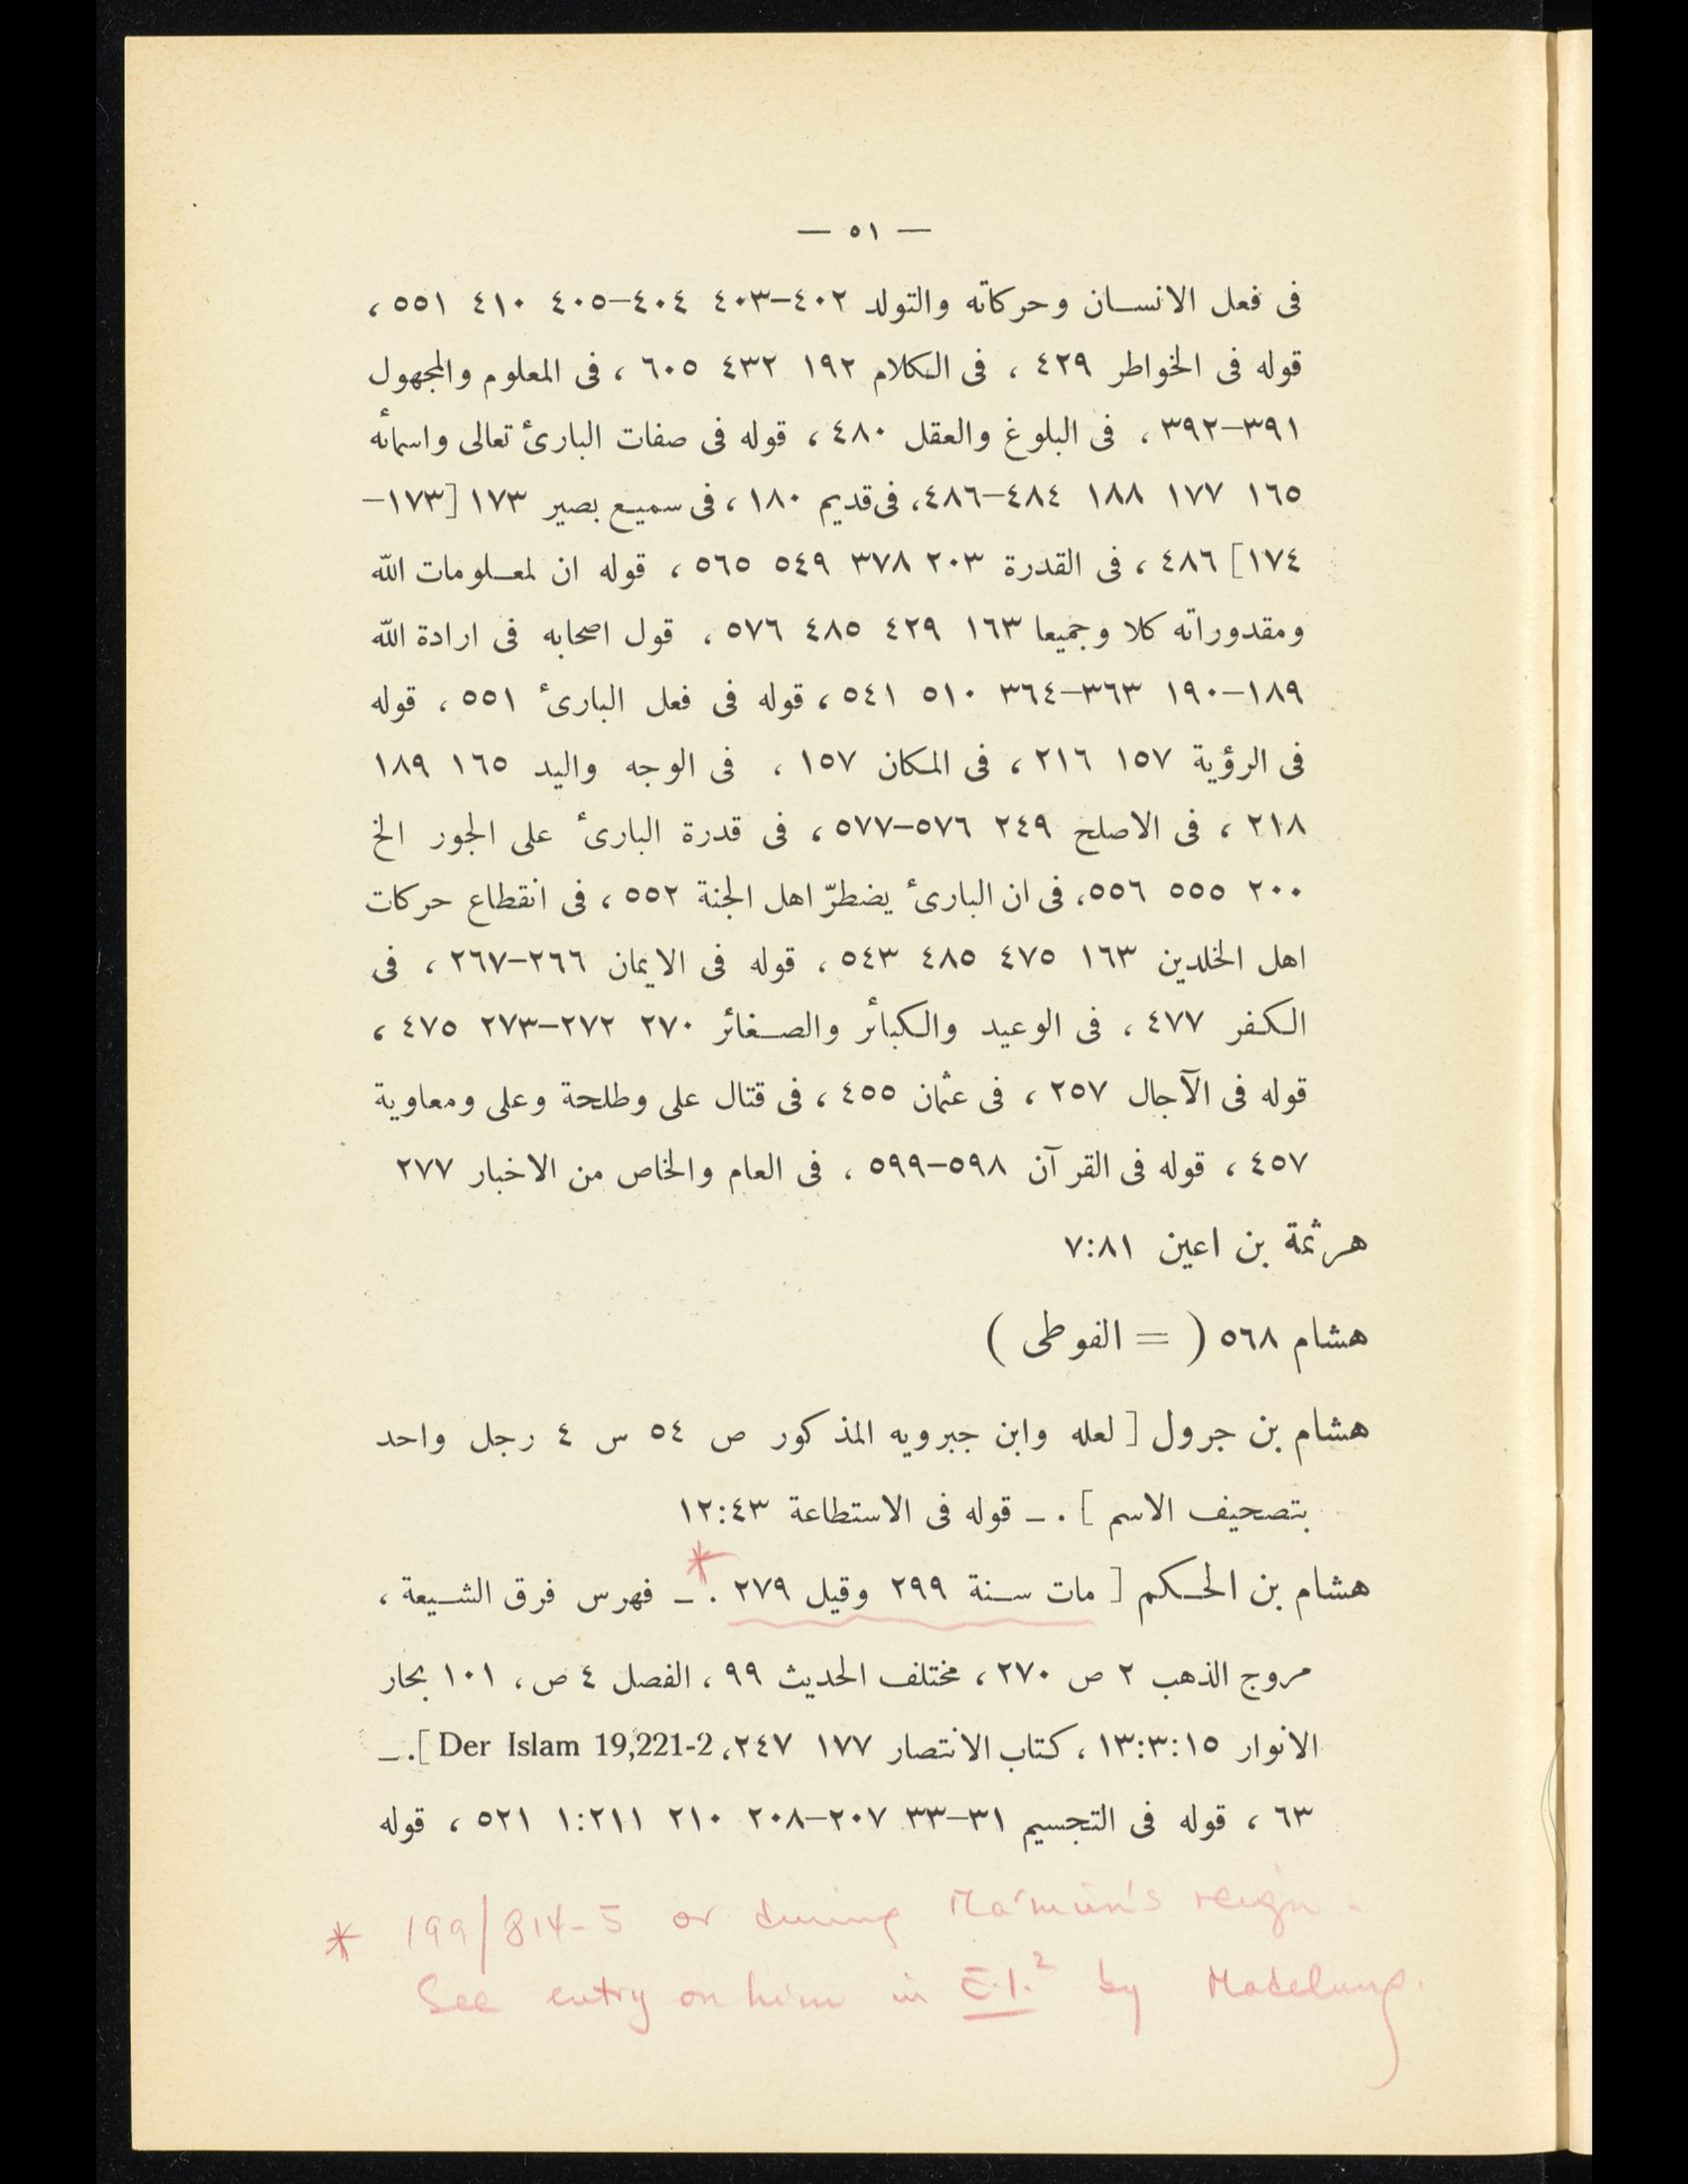 — ٥١ —
فى فعل الانسان وحركاته والتولد ٤٠٢–٤٠٣ ٤٠٤–٤٠٥ ٤١٠ ٥٥١ ،
قوله فى الخواطر ٤٢٩ ، فى الكلام ١٩٢ ٤٣٢ ٦٠٥ ، فى المعلوم والمجهول
٣٩١–٣٩٢ ، فى البلوغ والعقل ٤٨٠ ، قوله فى صفات البارئ تعالى واسمأنه
١٦٥ ١٧٧ ١٨٨ ٤٨٤–٤٨٦، فى قديم ١٨٠ ، فى سميع بصير ١٧٣ [١٧٣–
١٧٤] ٤٨٦ ، فى القدرة ٢٠٣ ٣٧٨ ٥٤٩ ٥٦٥ ، قوله ان لمعلومات اللّه
ومقدوراته كلا وجميعا ١٦٣ ٤٢٩ ٤٨٥ ٥٧٦ ، قول اصحابه فى ارادة اللّه
١٨٩–١٩٠ ٣٦٣–٣٦٤ ٥١٠ ٥٤١ ، قوله فى فعل البارئ ٥٥١ ، قوله
فى الرؤية ١٥٧ ٢١٦ ، فى المكان ١٥٧ ، فى الوجه واليد ١٦٥ ١٨٩
٢١٨ ، فى الاصلح ٢٤٩ ٥٧٦–٥٧٧ ، فى قدرة البارئ على الجور الخ
٢٠٠ ٥٥٥ ٥٥٦، فى ان البارئ يضطرّ اهل الجنة ٥٥٢ ، فى انقطاع حركات
اهل الخلدين ١٦٣ ٤٧٥ ٤٨٥ ٥٤٣ ، قوله فى الايمان ٢٦٦–٢٦٧ ، فى
الكفر ٤٧٧ ، فى الوعيد والكبأئر والصغائر ٢٧٠ ٢٧٢–٢٧٣ ٤٧٥ ،
قوله فى الآجال ٢٥٧ ، فى عثمان ٤٥٥ ، فى قتال على وطلحة وعلى ومعاوية
٤٥٧ ، قوله فى القرآن ٥٩٨–٥٩٩ ، فى العام والخاص من الاخبار ٢٧٧
هرثمة بن اعين ٧:٨١
هشام ٥٦٨ ( = الفوطى )
هشام بن جرول [ لعله وابن جبرويه المذكور ص ٥٤ س ٤ رجل واحد
بتصحيف الاسم ] . ــ قوله فى الاستطاعة ١٢:٤٣
هشام بن الحكم [ مات سنة ٢٩٩ وقيل ٢٧٩ .* ــ فهرس فرق الشيعة ،
مروج الذهب ٢ ص ٢٧٠ ، مختلف الحديث ٩٩ ، الفصل ٤ ص، ١٠١ بحار
الانوار ١٣:٣:١٥ ، كتاب الانتصار ١٧٧ ٢٤٧، Der Islam 19,221-2 ]. ــ
٦٣ ، قوله فى التجسيم ٣١–٣٣ ٢٠٧–٢٠٨ ٢١٠ ١:٢١١ ٥٢١ ، قوله
* 199/814-5 or during Ma'mūn's reign.
See entry on him in E.I.² by Madelung.